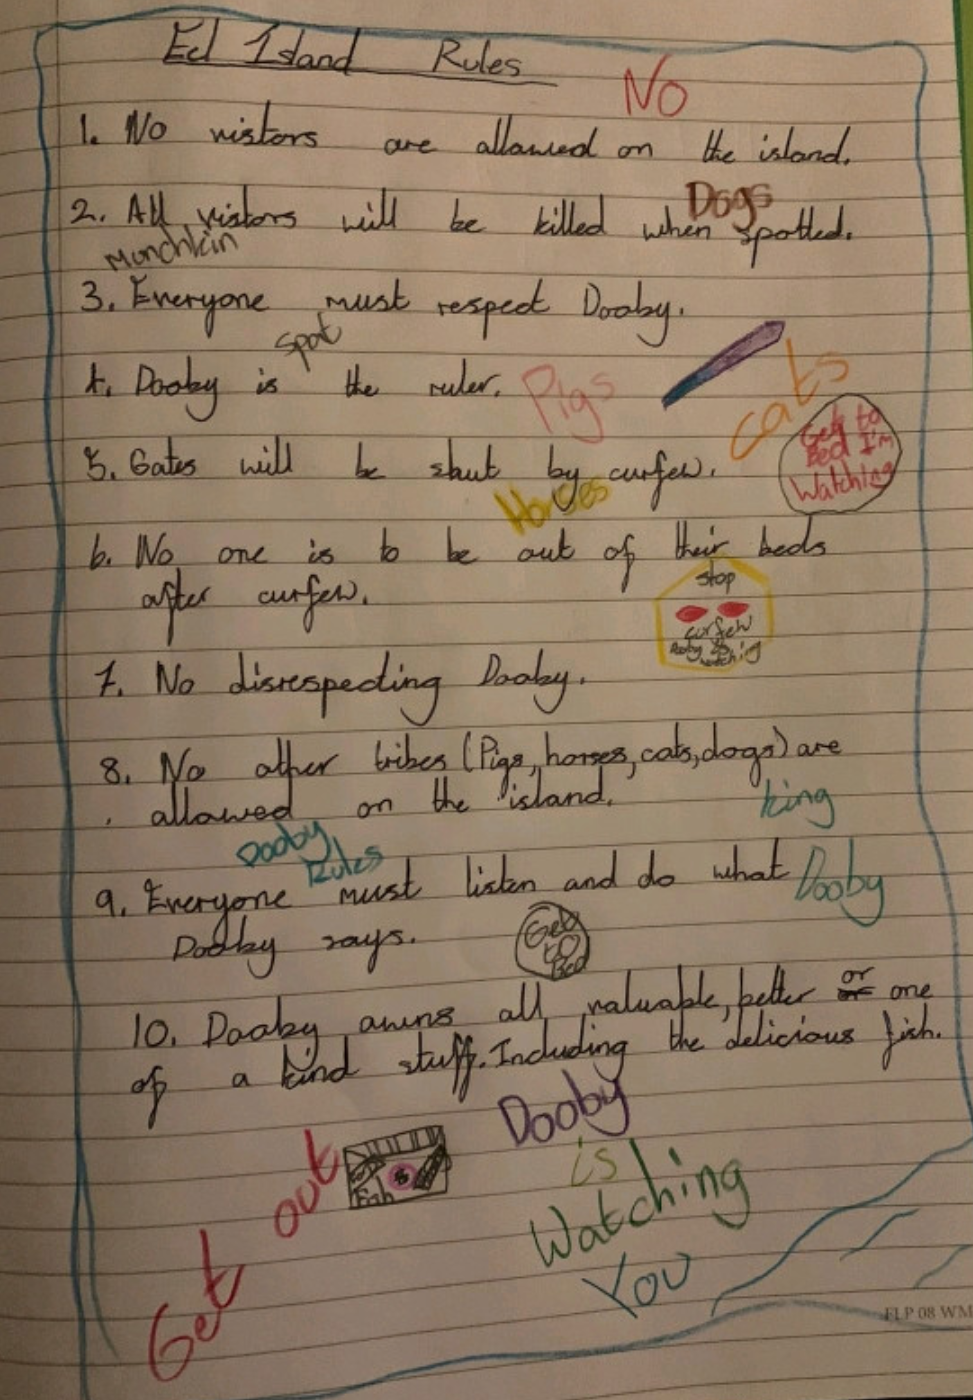 Eel Island Rules
NO
1. No vistors are allowed on the island.
Dogs
2. All vistors will be killed when spotted.
Munchkin
3. Everyone must respect Dooby.
spot
4. Dooby is the ruler.
Pigs
cats
5. Gates will be shut by curfew.
Get to
Bed I'm
Watching
Horses
6. No one is to be out of their beds
after curfew.
stop
curfew
Dooby is
watching
7. No disrespecting Dooby.
8. No other tribes (Pigs, horses, cats, dogs) are
allowed on the island.
king
Dooby
Dooby
Rules
9. Everyone must listen and do what
Dooby says.
Get
to
Bed
10. Dooby owns all valuable, better or one
of a kind stuff. Including the delicious fish.
Get out
$
Fish
Dooby
is
Watching
You
FLP 08 WM